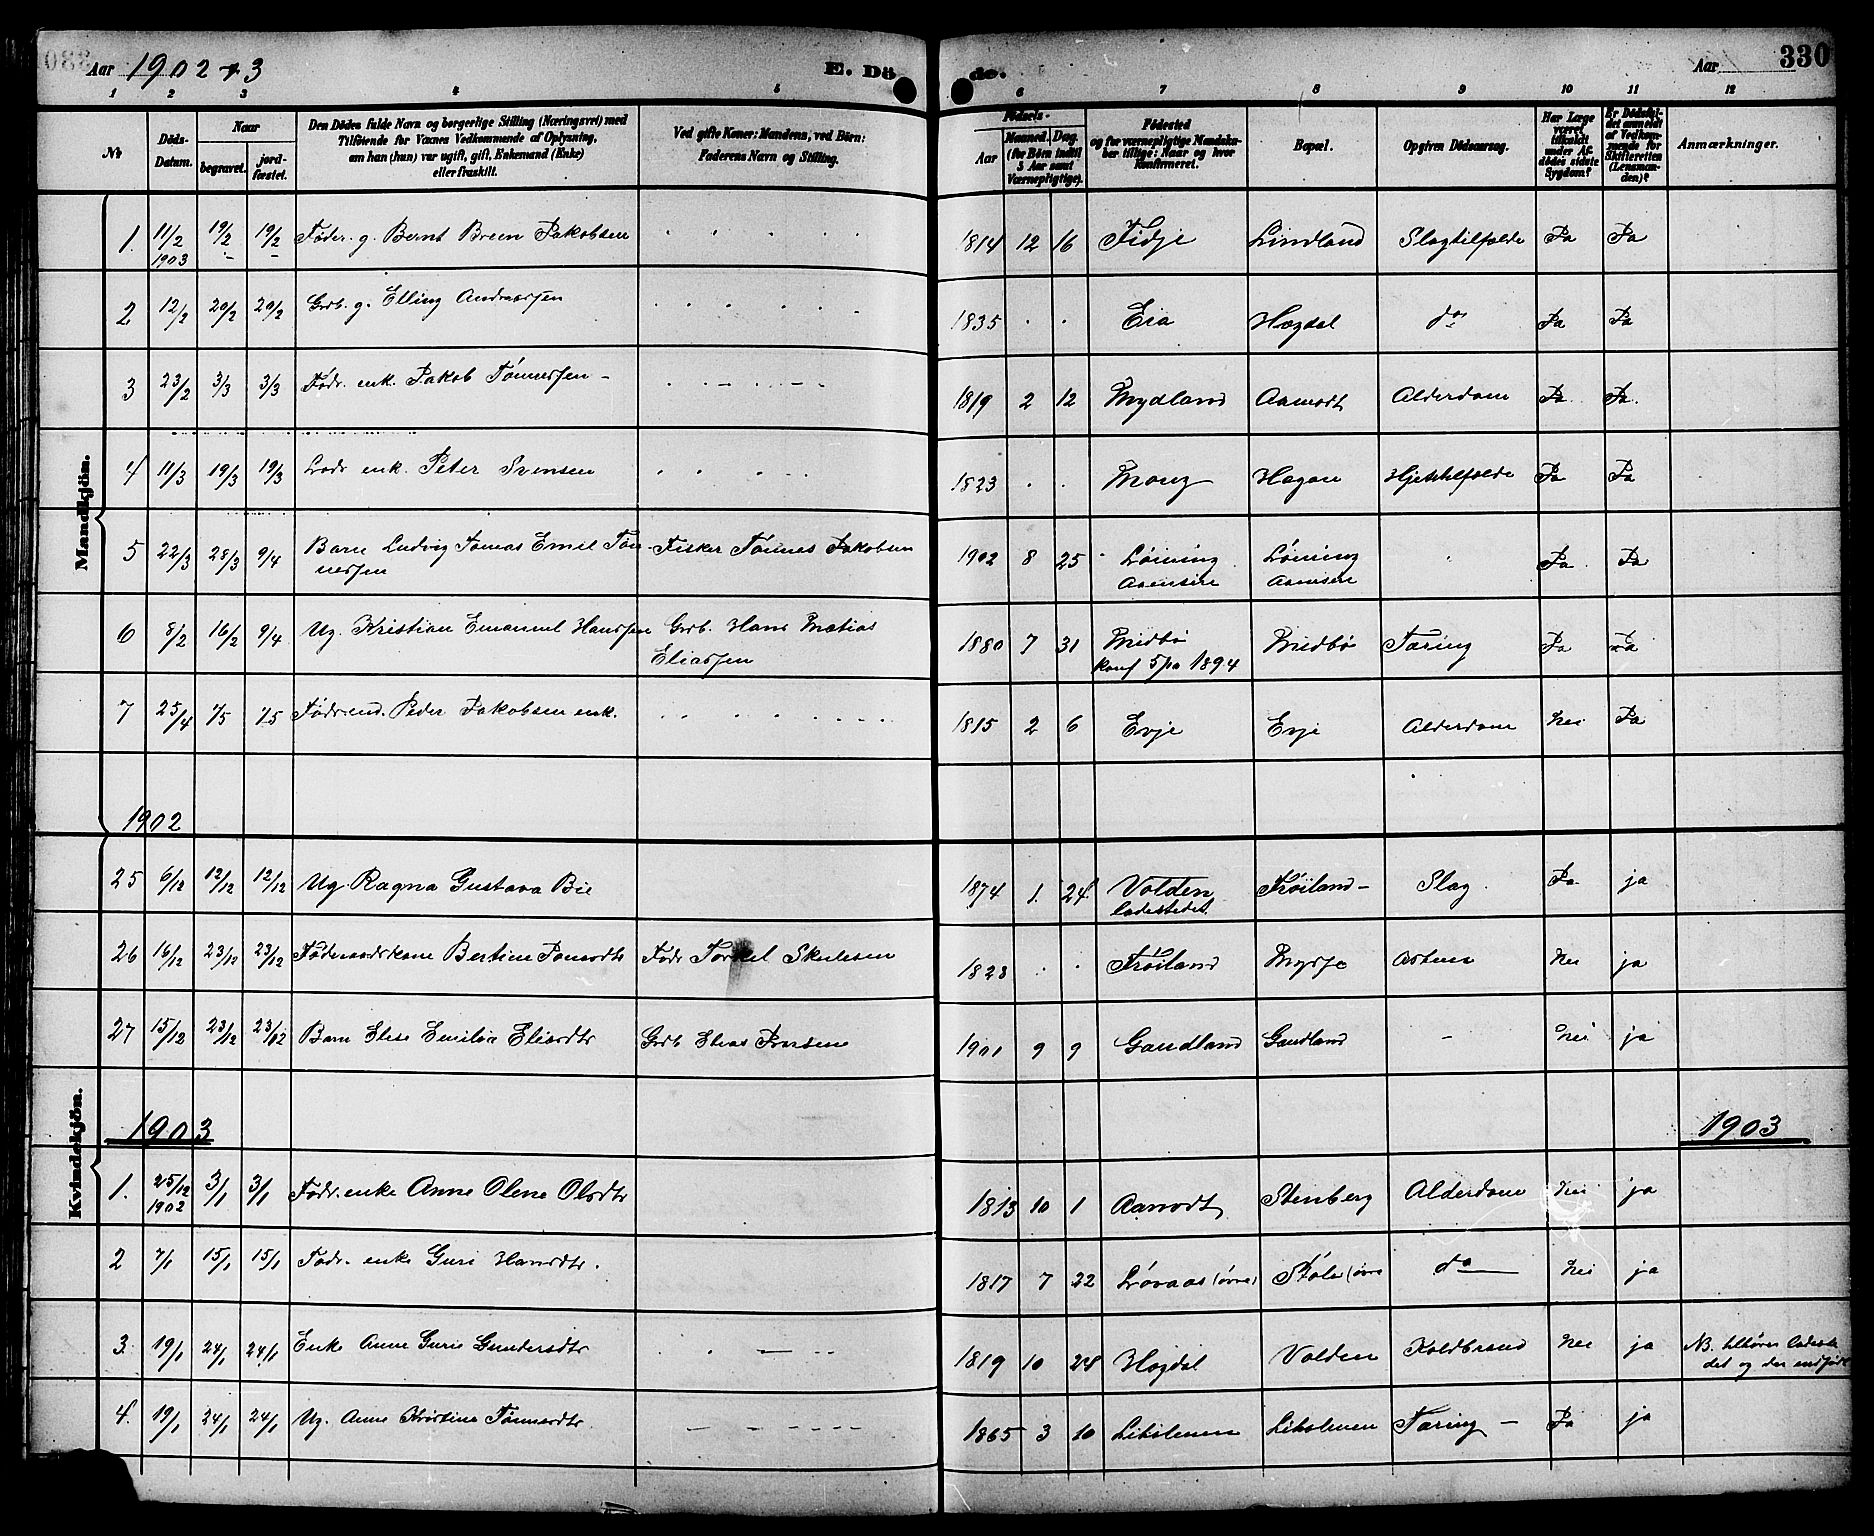 088
Aar 1902 & 3
E. Dö de.
Aar 330
1 2 3 4 5 6 7 8 9 10 11 12
No
Döds-
Datum.
Naar
begravet.
jord-
fæstet.
Den Dödes fulde Navn og borgerlige Stilling (Næringsvei) med
Tilföiende for Voxnes Vedkommende af Oplysning,
om han (hun) var ugift, gift, Enkemand (Enke)
eller fraskilt.
Ved gifte Koner: Mandens, ved Börn:
Faderens Navn og Stilling.
Födsels-
Aar
Maaned. Dag.
(for Börn indtil
5 Aar samt
Værnepligtige).
Födested
og for værnepligtige Mandska-
ber tillige: Naar og hvor
Konfirmeret.
Bopæl.
Opgiven Dödsaarsag.
Har Læge
været
tilkaldt
under Af-
dödes sidste
Sygdom?
Er Dödsfal-
det anmeldt
af Vedkom-
mende for
Skifteretten
(Lensman-
den)?
Anmærkninger.
Mandkjön.
1. 11/2 1903 19/2 19/2 Føder. g. Bernt Breen Jakobsen 1814 12 16 Fidje Lindland Slagtilfælde Ja Ja
2 12/2 20/2 20/2 Grdb. g. Elling Andreassen 1835 Eia Hægdal do Ja Ja
3 23/2 3/3 3/3 Fødr. enk. Jakob Tønnessen 1819 2 12 Mydland Aamodt Alderdom Ja Ja.
4 11/3 19/3 19/3 enk. Peter Svensen 1823 Mong Hagen Hjertefælde Ja Ja
5 22/3 28/3 9/4 Barn Ludvig Tomas Emil Tøn- Fisker Tønnes Jakobsen 1902 8 25 Løining Løining Ja Ja
nessen Aaensire Aaensire
6 8/2 16/2 9/4 Ug. Kristian Emanuel Hanssen Grdb. Hans Matias 1880 7 31 Midbø Midbø Tæring Ja Ja
Eliassen konf 1894
7 25/4 7/5 7/5 Peder Jakobsen enk. 1815 2 6 Evje Evje Alderdom Nei Ja
1902
Kvindekjön.
25 6/12 12/12 12/12 Ug. Ragna Gustava Bie 1874 1. 24 Volden Frøiland Slag. Ja ja
ladestedet
26 16/12 23/12 23/12 Føderaadskone Bertine Fødr Torkel Skulesen 1823 Frøiland Mysse Astma Nei ja
27 15/12 23/12 23/12 Barn Elise Emilie Eliasdtr Grdb Elias 1901 9 9 Gaudland Gaudland Nei ja
1903
1903
1. 25/12 1902 3/1 3/1 Fødr. enke Anne Olene Olsdtr 1813 10 1 Aamodt Stenberg Alderdom Nei ja
2 7/1 15/1 15/1 Fødr. enke Guri Hansdtr. 1817 7 22 Løvaas (øvre) Støle (øvre do Nei ja
3. 19/1 24/1 24/1 Enke Anne Gurie Gundersdtr 1819 10 28 Hægdal Volden Koldbrand Nei ja NB. tilhører ladeste
det og der
4. 19/1 24/1 24/1 Ug. Anne Kristine Tønnesdtr. 1865 3 10 Liholmen Liholmen Tæring Ja ja